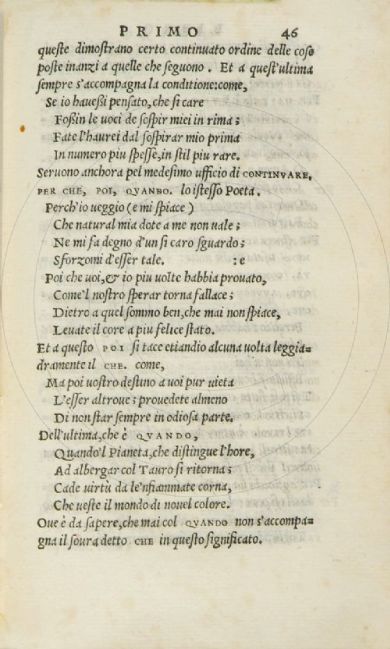 PRIMO 46
queste dimostrano certo continuato ordine delle cose
poste inanzi a quelle che seguono. Et a quest'ultima
sempre s'accompagna la conditione: come,
Se io hauessi pensato, che si care
Fossin le uoci de sospir miei in rima;
Fate l'haurei dal sospirar mio prima
In numero piu spesse, in stil piu rare.
Seruono anchora pel medesimo ufficio di CONTINVARE,
PER CHE, POI, QVANDO. lo istesso Poeta.
Perch'io ueggio (e mi spiace)
Che natural mia dote a me non uale;
Ne mi fa degno d'un si caro sguardo;
Sforzomi d'esser tale. : e
Poi che uoi, & io piu uolte habbia prouato,
Come'l nostro sperar torna fallace;
Dietro a quel sommo ben, che mai non spiace,
Leuate il core a piu felice stato.
Et a questo POI si tace etiandio alcuna volta leggia=
dramente il CHE. come,
Ma poi uostro destino a uoi pur uieta
L'esser altroue; prouedete almeno
Di non star sempre in odiosa parte.
Dell'ultima, che è QVANDO,
Quando'l Pianeta, che distingue l'hore,
Ad albergar col Tauro si ritorna;
Cade uirtù da le'nfiammate corna,
Che ueste il mondo di nouel colore.
Oue è da sapere, che mai col QVANDO non s'accompa=
gna il soura detto CHE in questo significato.